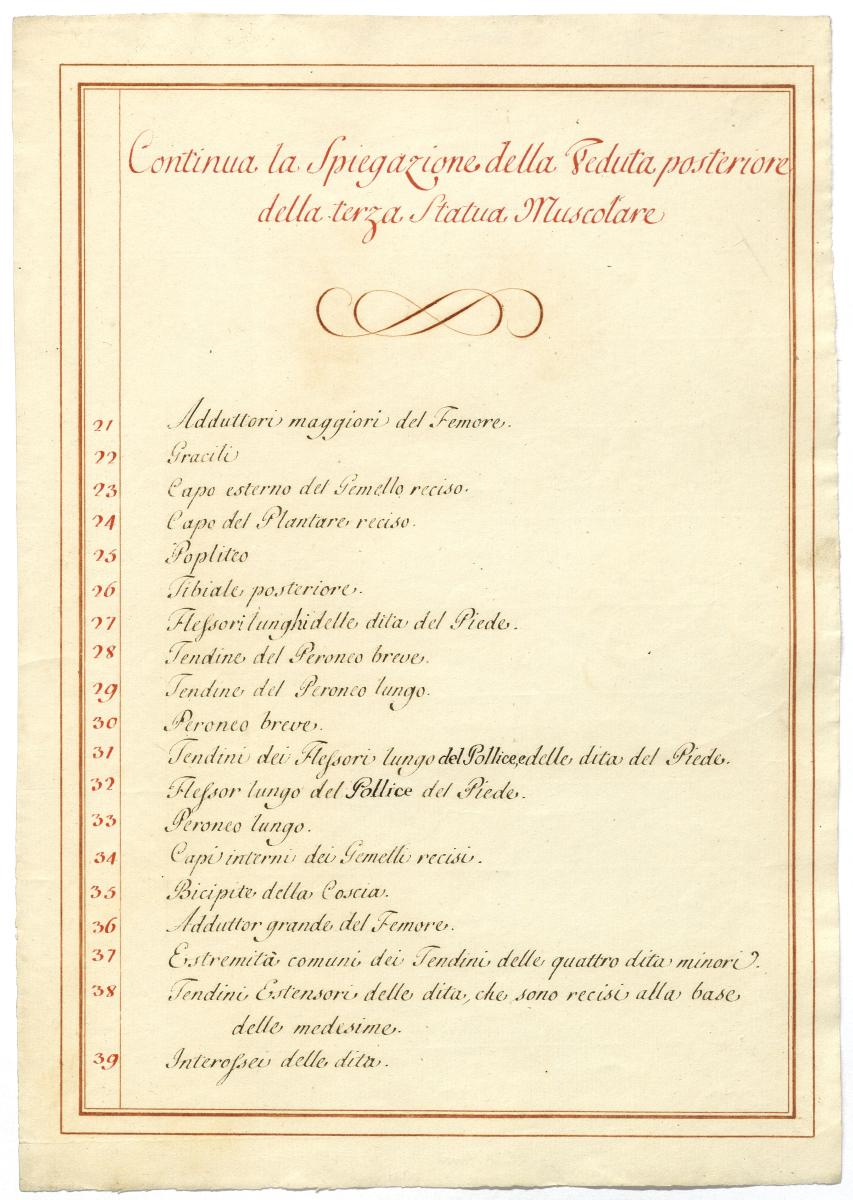 Continua la Spiegazione della Veduta posteriore
della terza Statua Muscolare
21 Adduttori maggiori del Femore.
22 Gracili
23 Capo esterno del Gemello reciso.
24 Capo del Plantare reciso.
25 Popliteo
26 Tibiale posteriore.
27 Flessori lunghi delle dita del Piede.
28 Tendine del Peroneo breve.
29 Tendine del Peroneo lungo.
30 Peroneo breve.
31 Tendini dei Flessori lungo del Pollice, e delle dita del Piede.
32 Flessor lungo del Pollice del Piede.
33 Peroneo lungo.
34 Capi interni dei Gemelli recisi.
35 Bicipite della Coscia.
36 Adduttor grande del Femore.
37 Estremità comuni dei Tendini delle quattro dita minori.
38 Tendini Estensori delle dita, che sono recisi alla base
delle medesime.
39 Interossei delle dita.